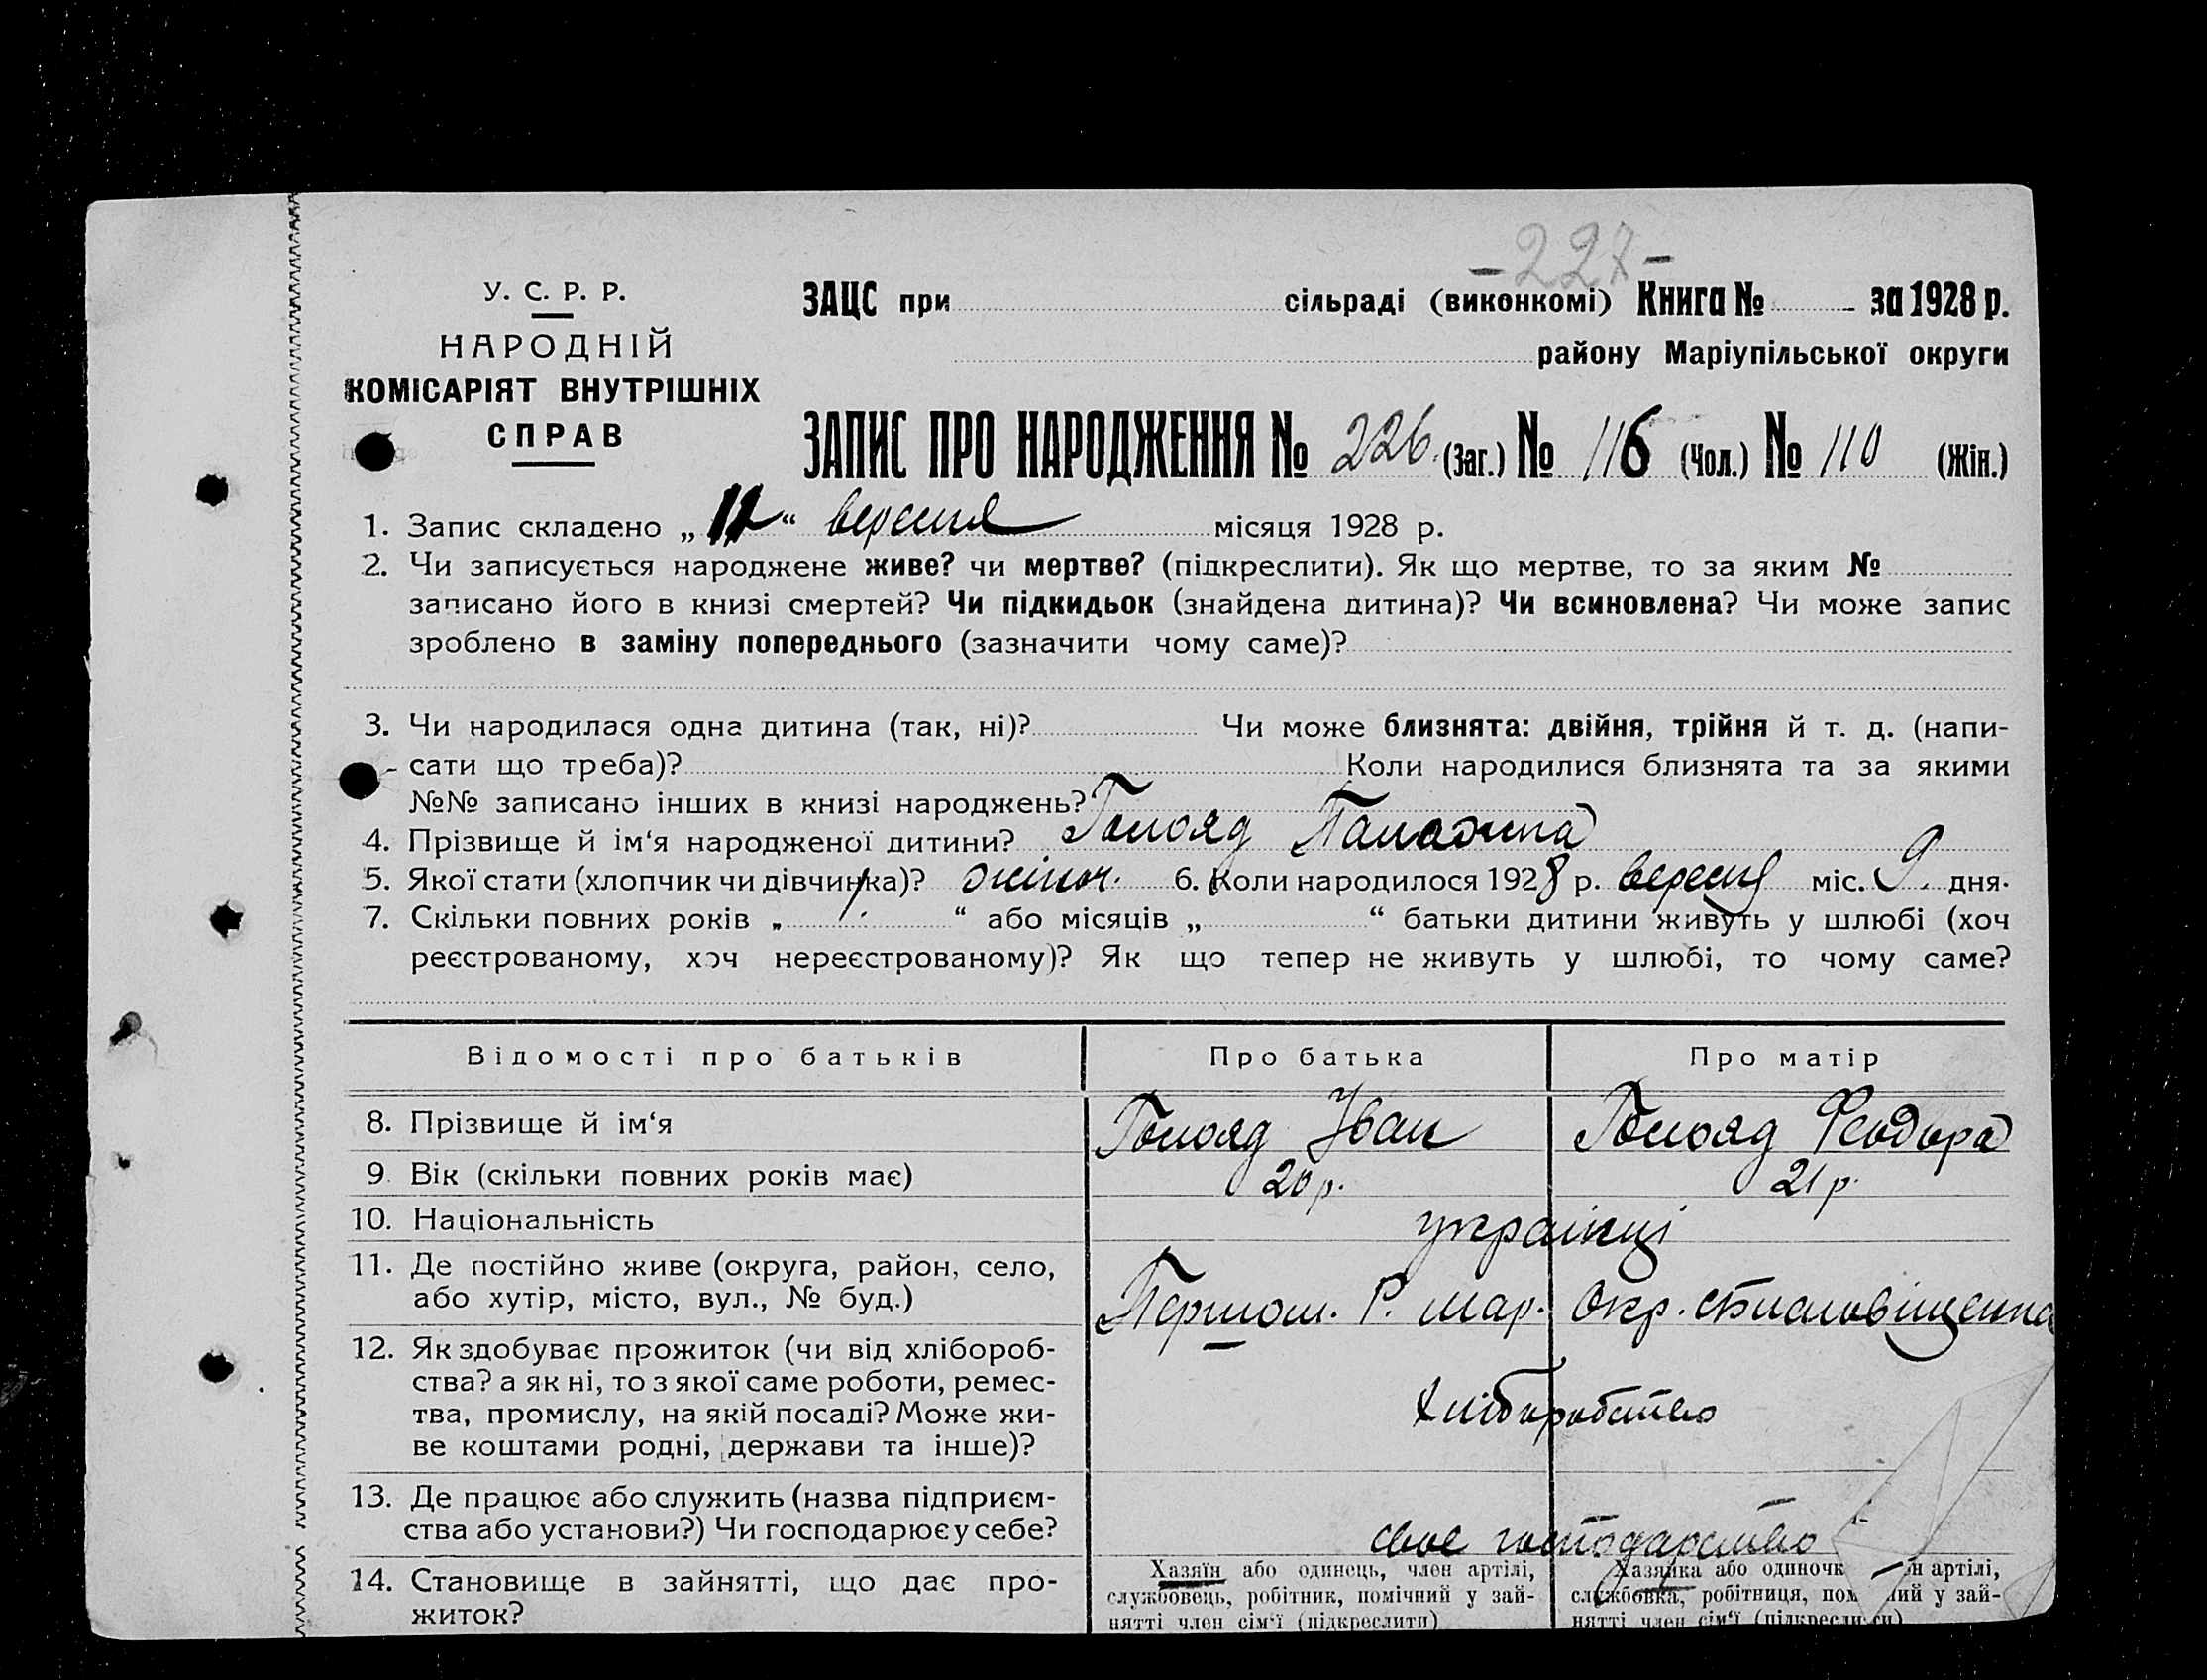 - 227 -
У. С. Р. Р.
НАРОДНІЙ
КОМІСАРІЯТ ВНУТРІШНІХ
СПРАВ
ЗАЦС при сільраді (виконкомі) Книга № за 1928 р.
району Маріупільської округи
ЗАПИС ПРО НАРОДЖЕННЯ № 226 (Заг.) № 116 (Чол.) № 110 (Жін.)
1. Запис складено „12“ вересня місяця 1928 р.
2. Чи записується народжене живе? чи мертве? (підкреслити). Як що мертве, то за яким №
записано його в книзі смертей? Чи підкидьок (знайдена дитина)? Чи всиновлена? Чи може запис
зроблено в заміну попереднього (зазначити чому саме)?
3. Чи народилася одна дитина (так, ні)? Чи може близнята: двійня, трійня й т. д. (напи-
сати що треба)? Коли народилися близнята та за якими
№№ записано інших в книзі народжень?
4. Прізвище й ім‘я народженої дитини?
5. Якої стати (хлопчик чи дівчинка)? жіноч. 6. Коли народилося 1928 р. вересня міс. 9. дня.
7. Скільки повних років „ “ або місяців „ “ батьки дитини живуть у шлюбі (хоч
реєстрованому, хоч нереєстрованому)? Як що тепер не живуть у шлюбі, то чому саме?
Відомості про батьків Про батька Про матір
8. Прізвище й ім‘я Голояд Іван Голояд Феодора
9. Вік (скільки повних років має) 20 р. 21 р.
10. Національність українці
11. Де постійно живе (округа, район, село,
або хутір, місто, вул., № буд.) Першом. Р. Мар. Окр.
12. Як здобуває прожиток (чи від хлібороб-
ства? а як ні, то з якої саме роботи, ремес-
тва, промислу, на якій посаді? Може жи-
ве коштами родні, держави та інше)? Хліборобство
13. Де працює або служить (назва підприєм-
ства або установи?) Чи господарює у себе? своє господарство
14. Становище в зайнятті, що дає про-
житок?
Хазяїн або одинець, член артілі,
службовець, робітник, помічний у зай-
нятті член сім‘ї (підкреслити)
Хазяйка або одиночк артілі,
службовка, робітниця, пом у зай-
нятті член сім‘ї